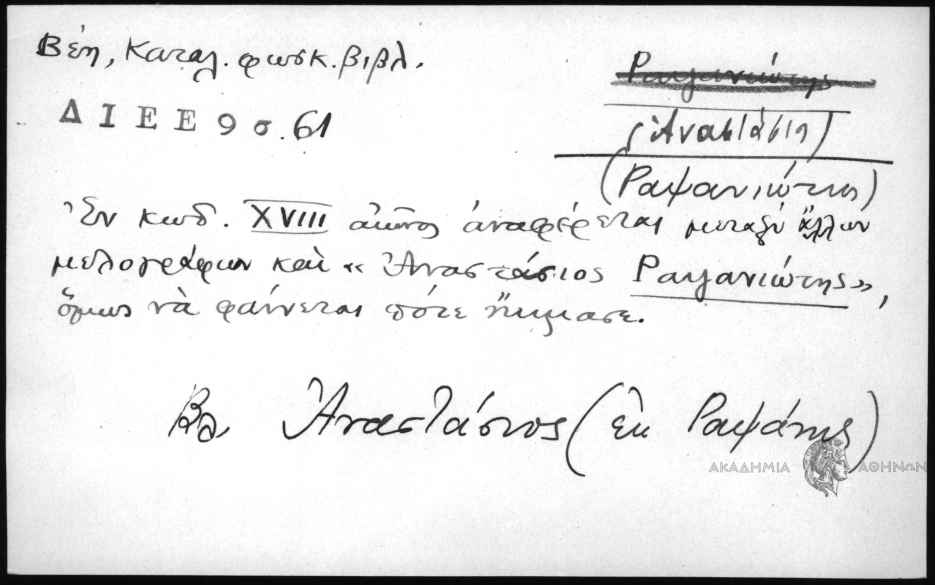 Βέη, Καταλ. φωσκ. βιβλ.
ΔΙΕΕ 9 σ. 61
Ραψανιώτης
(Ἀναστάσιος)
(Ραψανιώτης)
Ἐν κωδ. XVIII αἰῶνος ἀναφέρεται μεταξὺ ἄλλων
μελογράφων καὶ «Ἀναστάσιος Ραψανιώτης»,
ὅμως νὰ φαίνεται πότε ἤκμασε.
Βλ. Ἀναστάσιος (ἐκ Ραψάνης)
ΑΚΑΔΗΜΙΑ ΑΘΗΝΩΝ